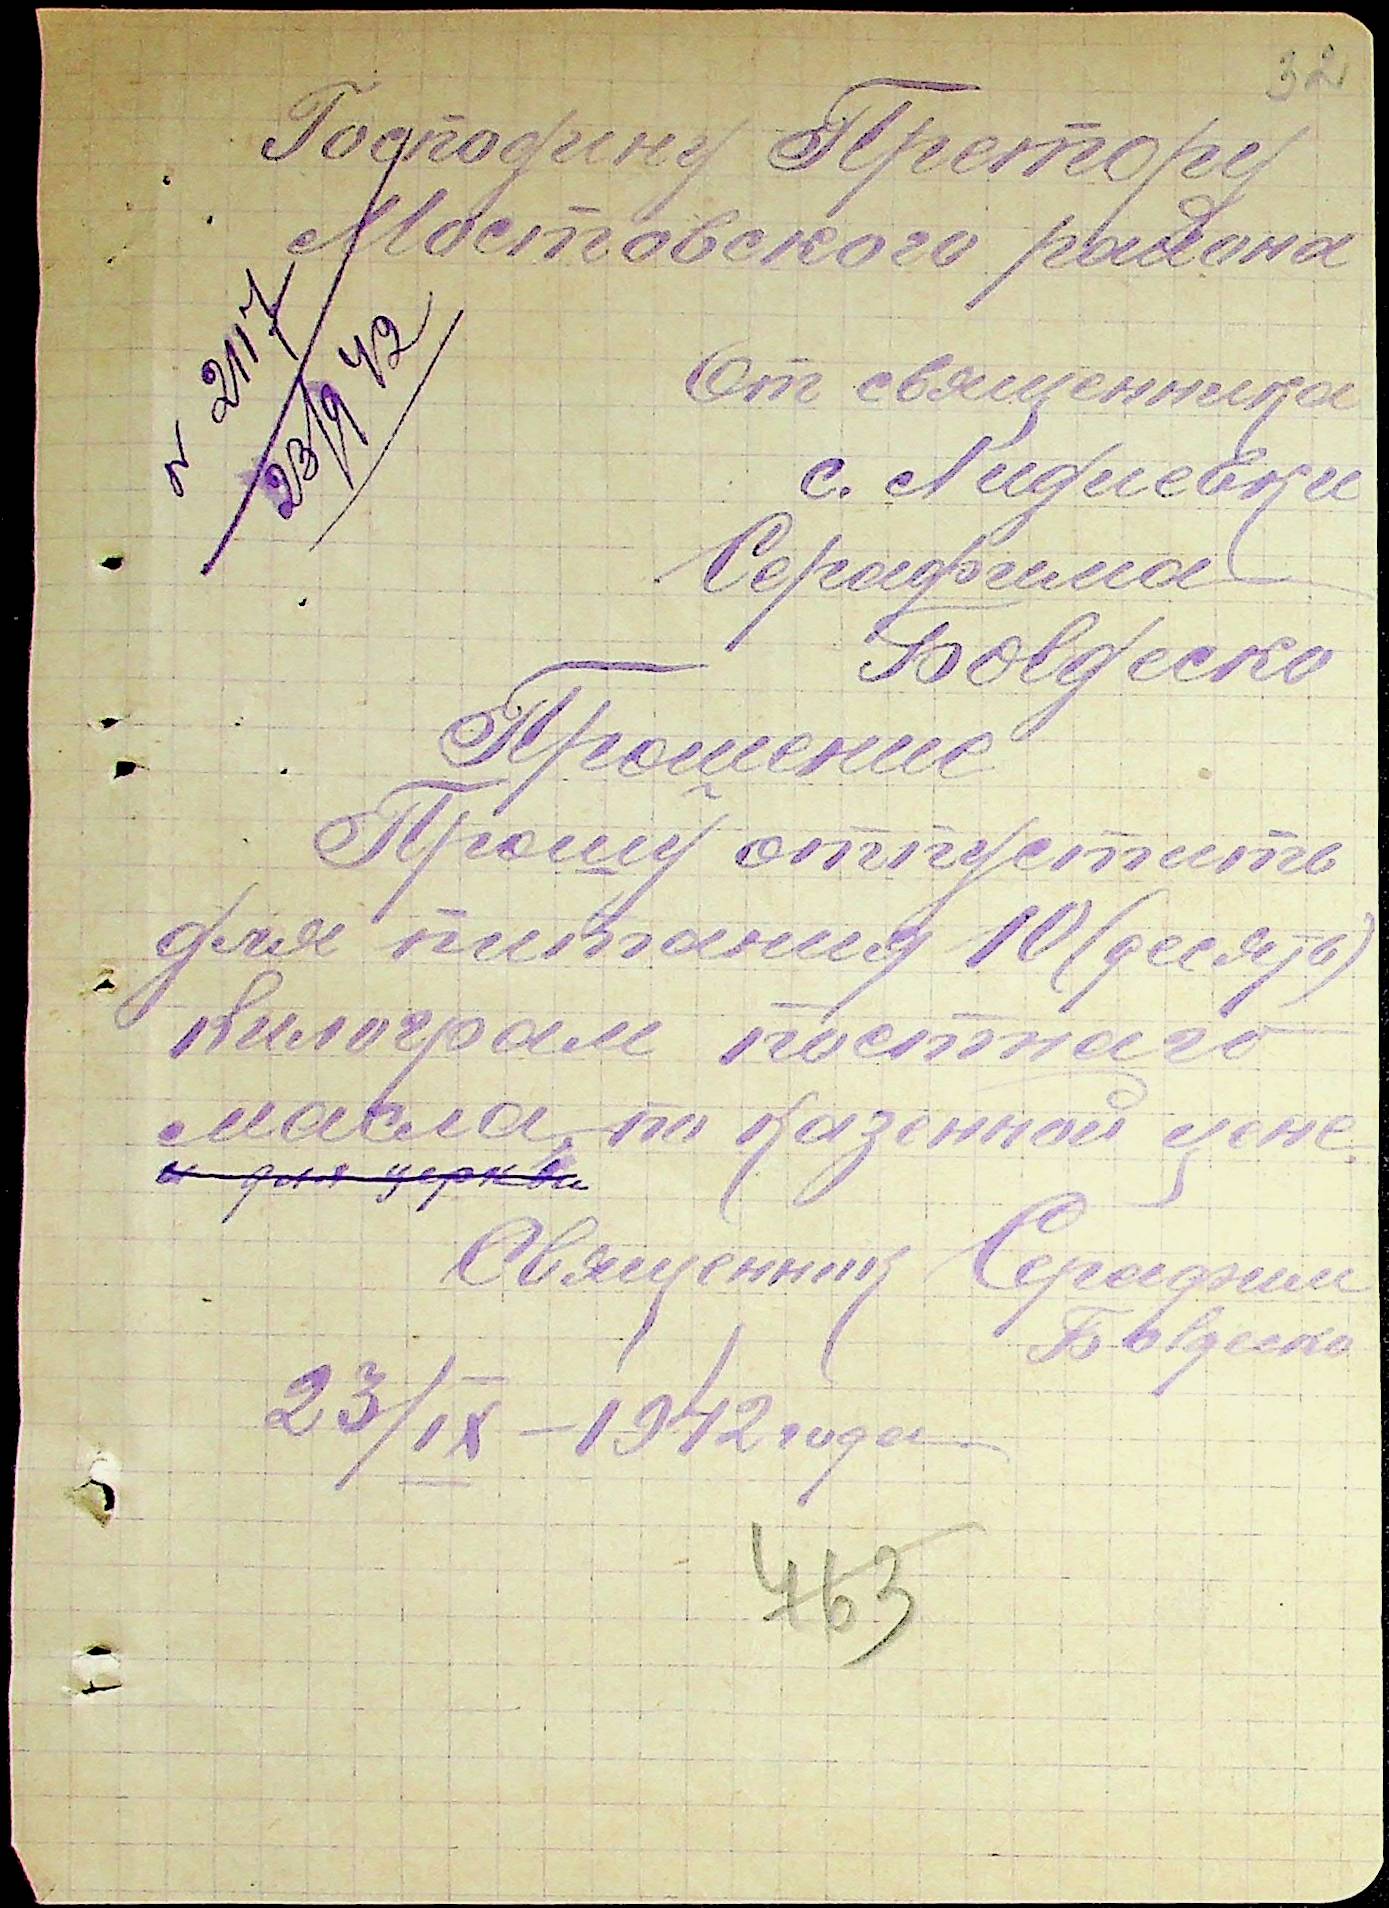 32
Господину Претору
Мостовского района
N 2117
23/9 42
От священника
с. Лидиевки
Серафима
Бовдеско
Прошение
Прошу отпустить
для питания 10 (десять)
килограм постнаго
масла, по казенной цене.
и для церкви
Священник Серафим
Бовдеско
23/IX – 1942 года
463